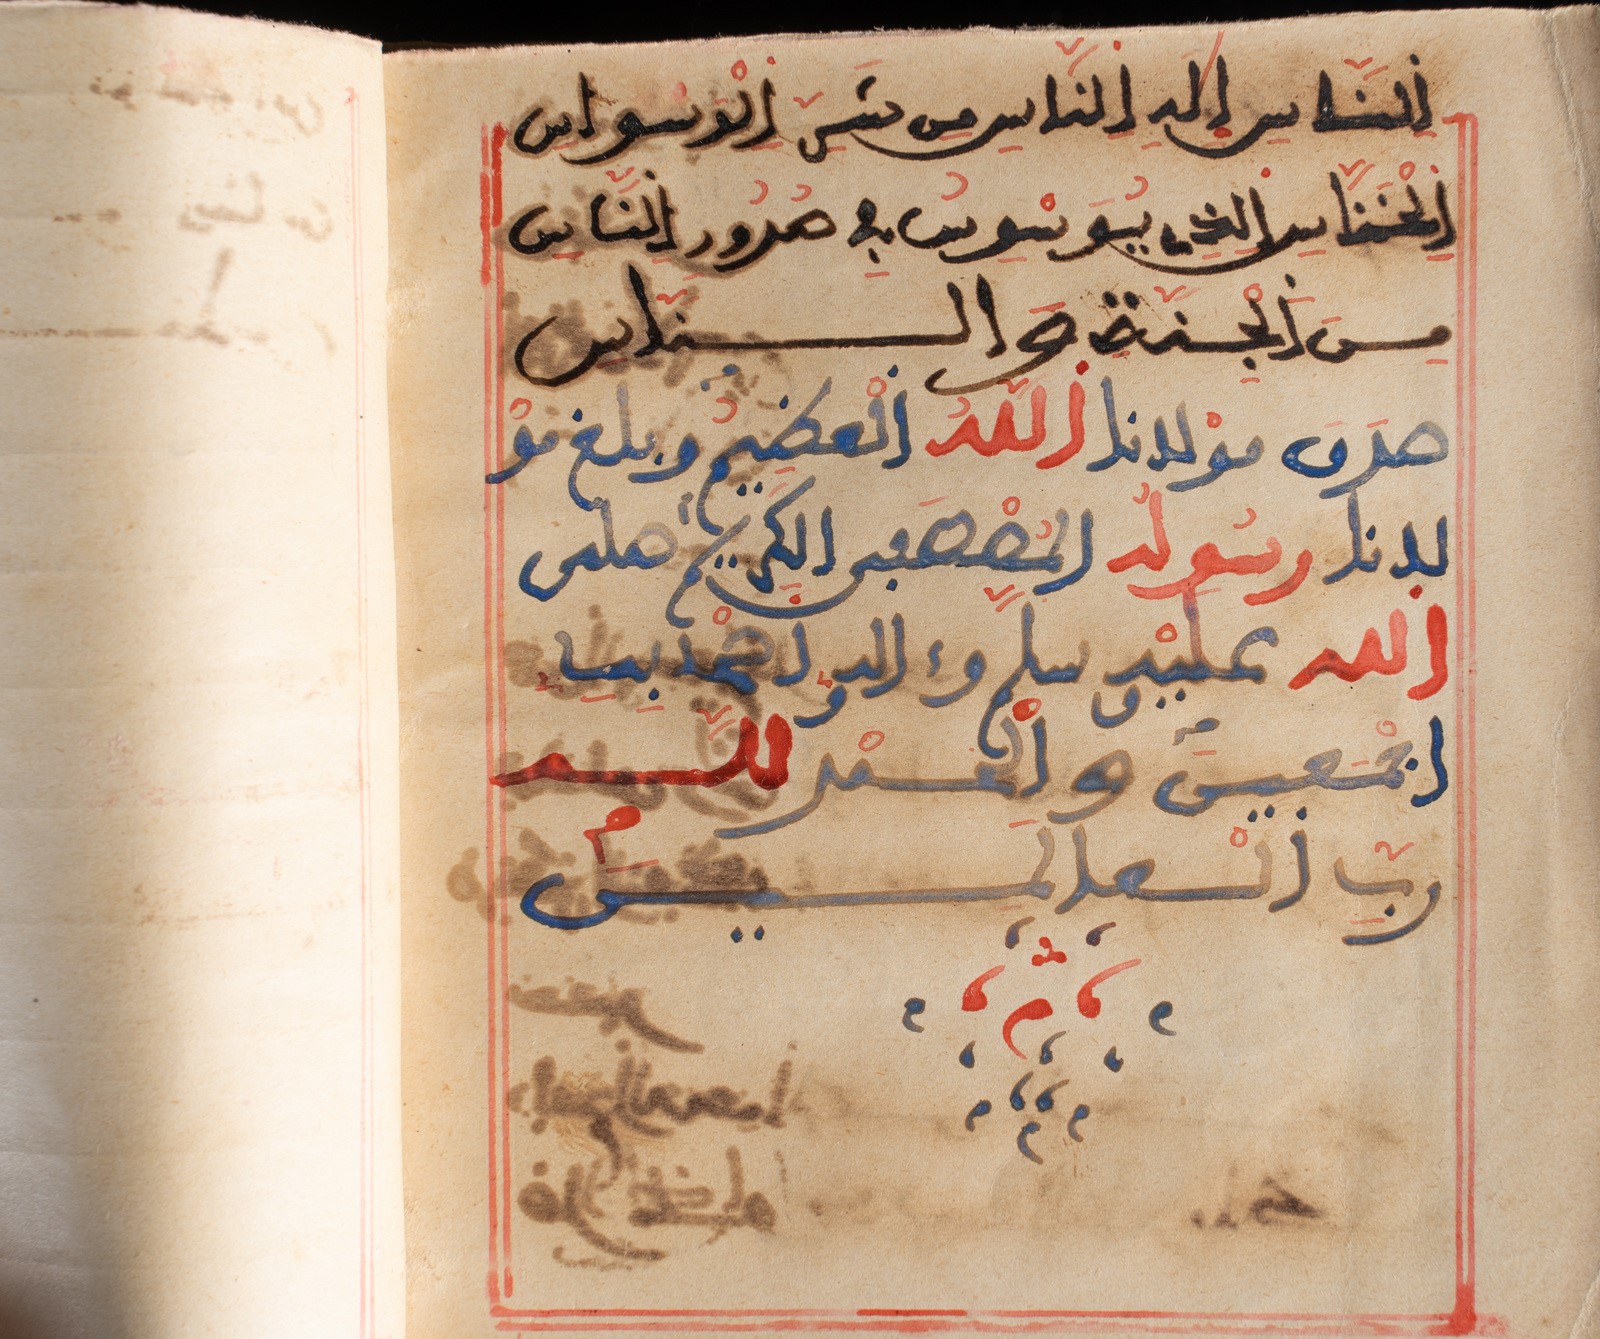 النَّاسِ إِلَٰهِ النَّاسِ مِن شَرِّ الْوَسْوَاسِ
الْخَنَّاسِ الذِے يُوَسْوِسُ فِے صُدُورِ النَّاسِ
مِنَ الْجِنَّةِ وَالنَّاسِ
صدَقَ مَوْلدنا اللهُ الْعظيمُ وبلغ مَوْ
لدنا رسُولهُ المُصْطَفى الكَرِيمُ صلى
الله عليْه وسلم وءاله وأصْحابه
أجْمعين والْحمْد لله
رَبِّ الْعالمين
م